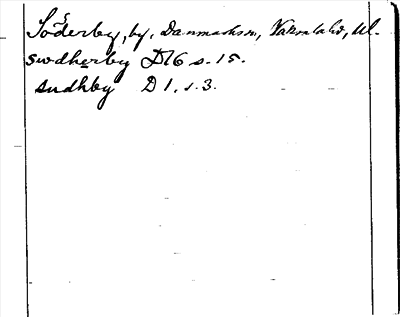 Söderby, by, Danmarks sn, Vaksala hd, Ul.
swdherby D16 s. 15.
sudhby D 1. s. 3.